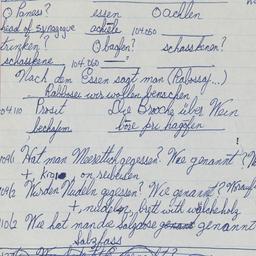 O Parnes? essen O acheln
head of synagogue achiele 104.050
trinken? O baofen? schasskenen?
schasskene 104.060 "
Nach dem Essen sagt man (Rabossaj...)
Rabbosei wir wollen benschen
104.110 Prosit Die Broche über Wein
lechajim bore pri hagofen
Hat man Meerettich gegessen? Wie genannt?
+, on reibeisen
Wurden Nudeln gegessen? Wie genannt?
+, nudelen, brett mit walcheholz
Wie hat man die Salzdose genannt
Salzfass